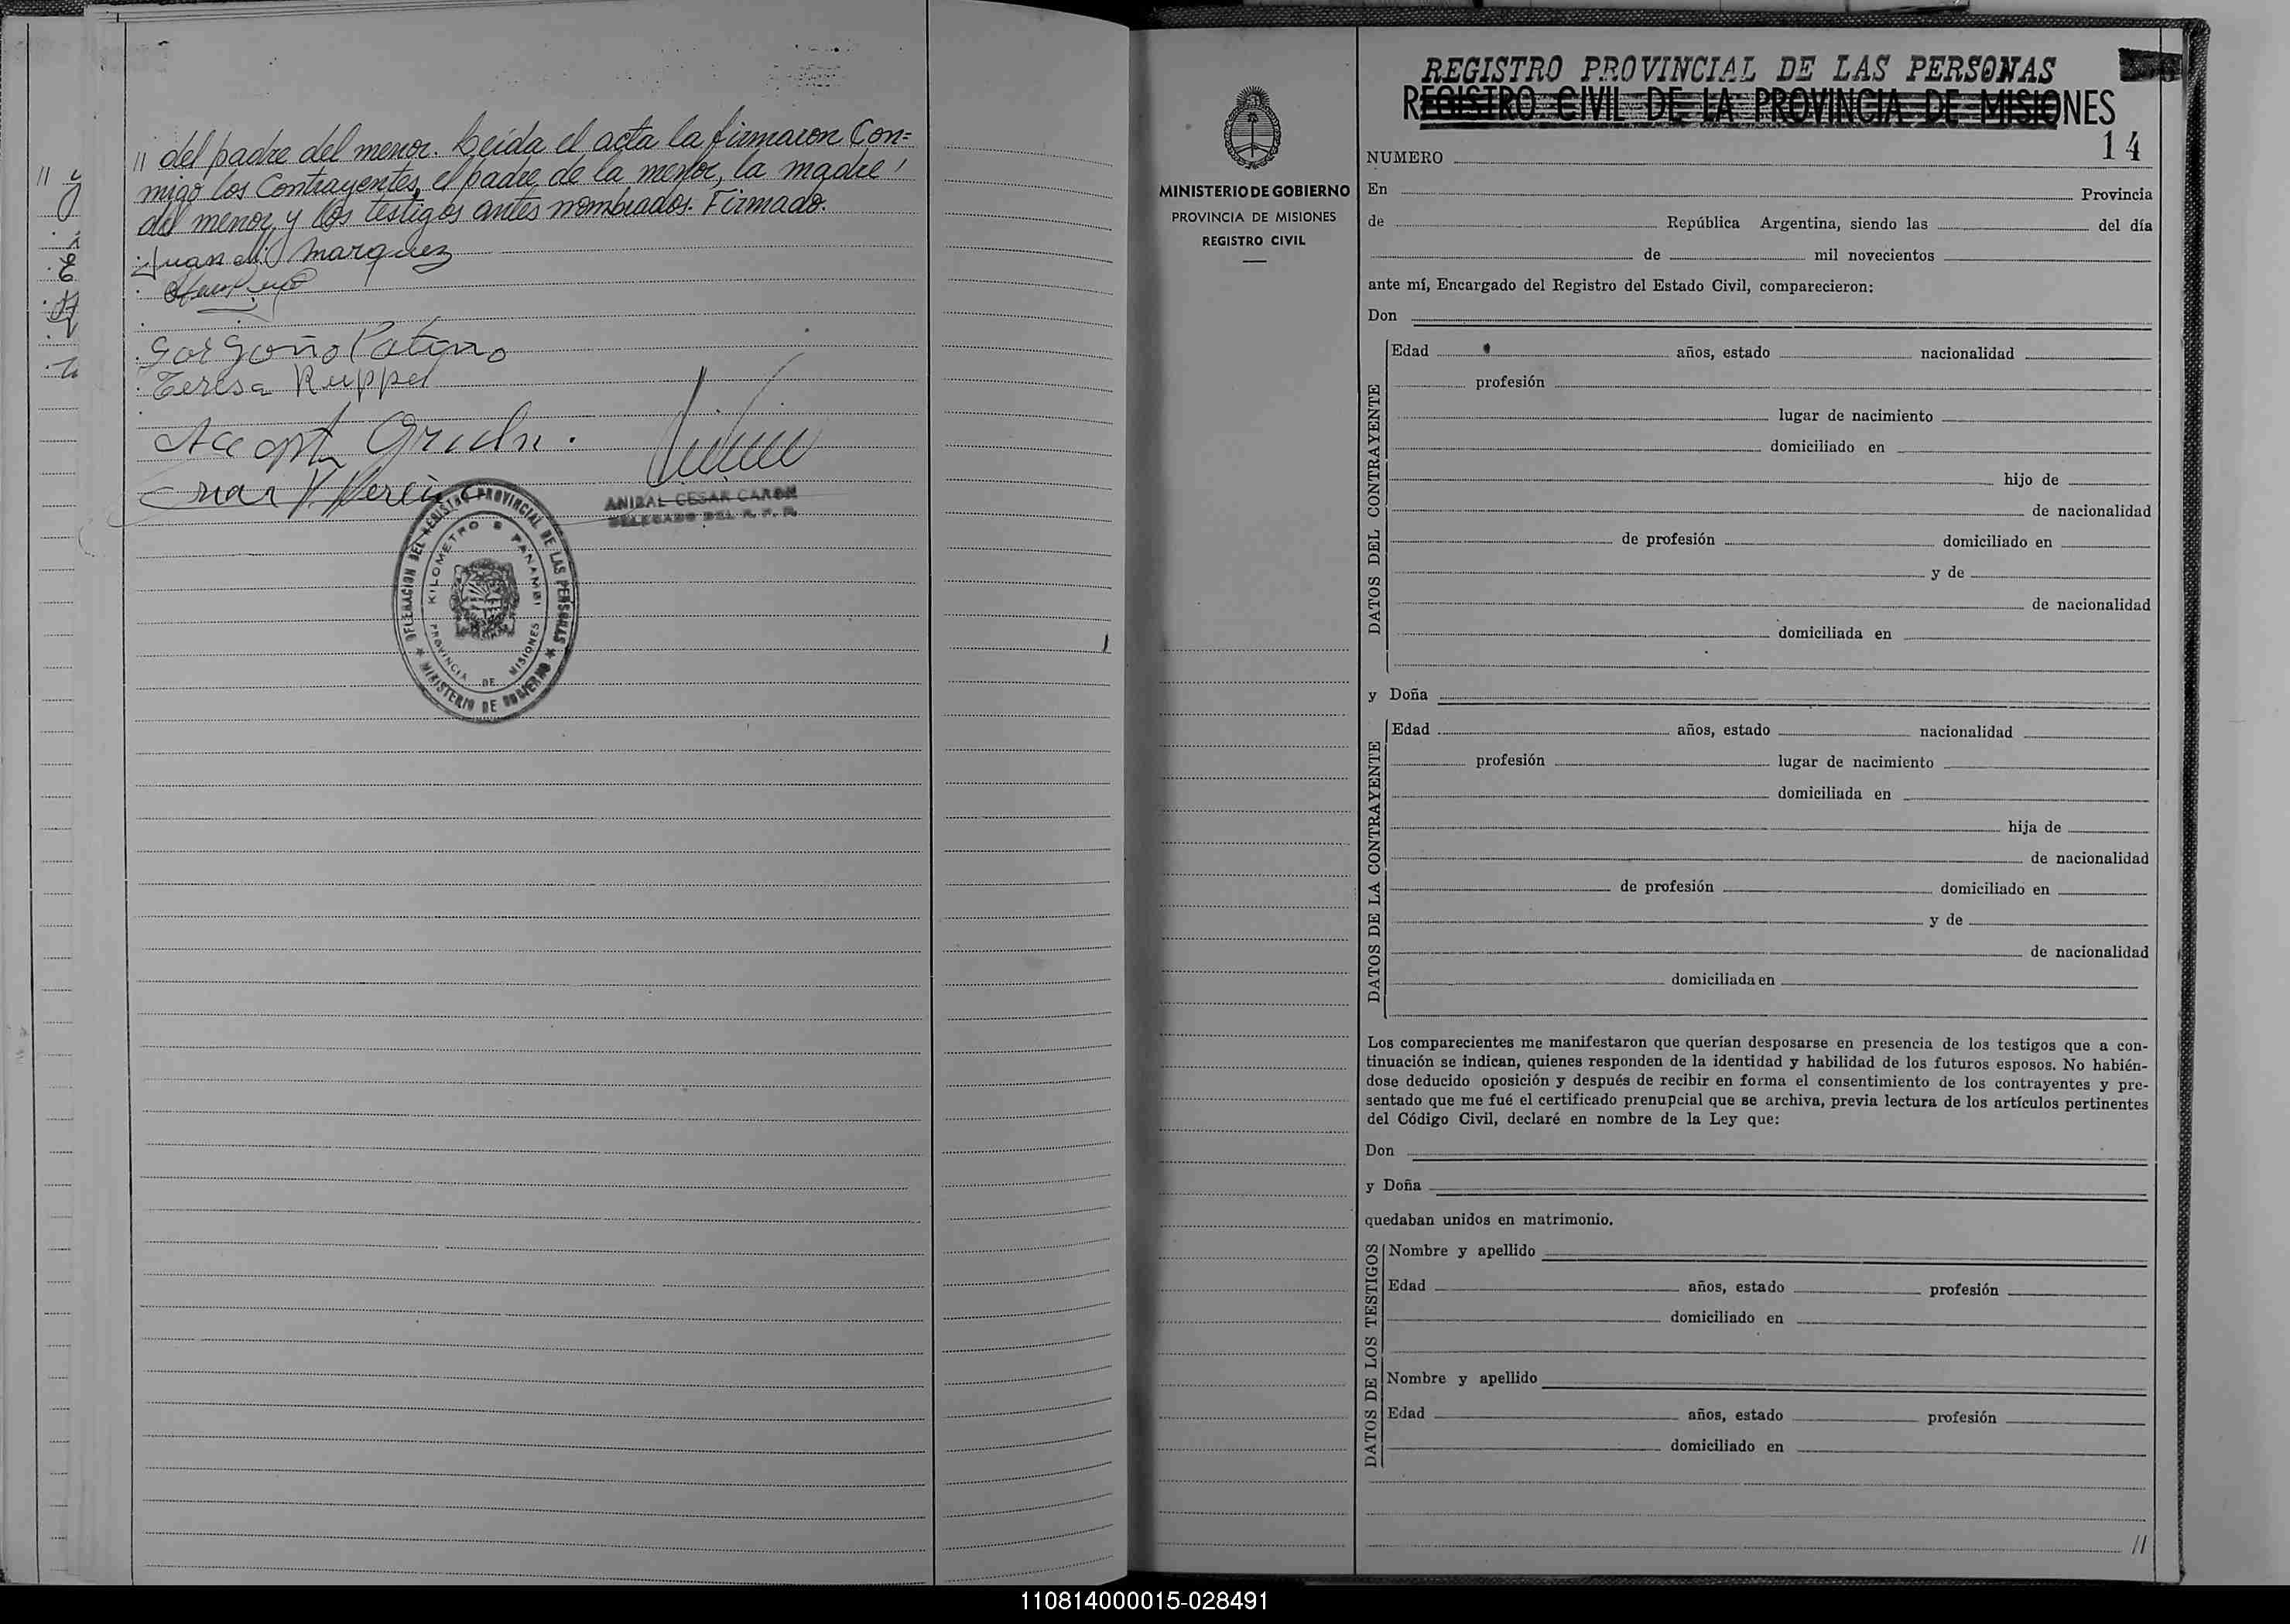 // del padre del menor. Leída el acta la firmaron Con=
migo los Contrayentes, el padre de la menor, la madre
del menor y los testigos antes nombrados. Firmado.
Juan Marquez
Teresa Ruppel
ANIBAL CESAR CARON
DELEGADO DEL R. P. P.
DELEGACION DEL REGISTRO PROVINCIAL DE LAS PERSONAS
KILOMETRO 8 PANAMBI
PROVINCIA DE MISIONES
MINISTERIO DE GOBIERNO
MINISTERIO DE GOBIERNO
PROVINCIA DE MISIONES
REGISTRO CIVIL
REGISTRO PROVINCIAL DE LAS PERSONAS
REGISTRO CIVIL DE LA PROVINCIA DE MISIONES
14
NUMERO
En Provincia
de República Argentina, siendo las del día
de mil novecientos
ante mí, Encargado del Registro del Estado Civil, comparecieron:
Don
DATOS DEL CONTRAYENTE
Edad años, estado nacionalidad
profesión
lugar de nacimiento
domiciliado en
hijo de
de nacionalidad
de profesión domiciliado en
y de
de nacionalidad
domiciliada en
y Doña
DATOS DE LA CONTRAYENTE
Edad años, estado nacionalidad
profesión lugar de nacimiento
domiciliada en
hija de
de nacionalidad
de profesión domiciliado en
y de
de nacionalidad
domiciliada en
Los comparecientes me manifestaron que querían desposarse en presencia de los testigos que a con-
tinuación se indican, quienes responden de la identidad y habilidad de los futuros esposos. No habién-
dose deducido oposición y después de recibir en forma el consentimiento de los contrayentes y pre-
sentado que me fué el certificado prenupcial que se archiva, previa lectura de los artículos pertinentes
del Código Civil, declaré en nombre de la Ley que:
Don
y Doña
quedaban unidos en matrimonio.
DATOS DE LOS TESTIGOS
Nombre y apellido
Edad años, estado profesión
domiciliado en
Nombre y apellido
Edad años, estado profesión
domiciliado en
//
110814000015-028491